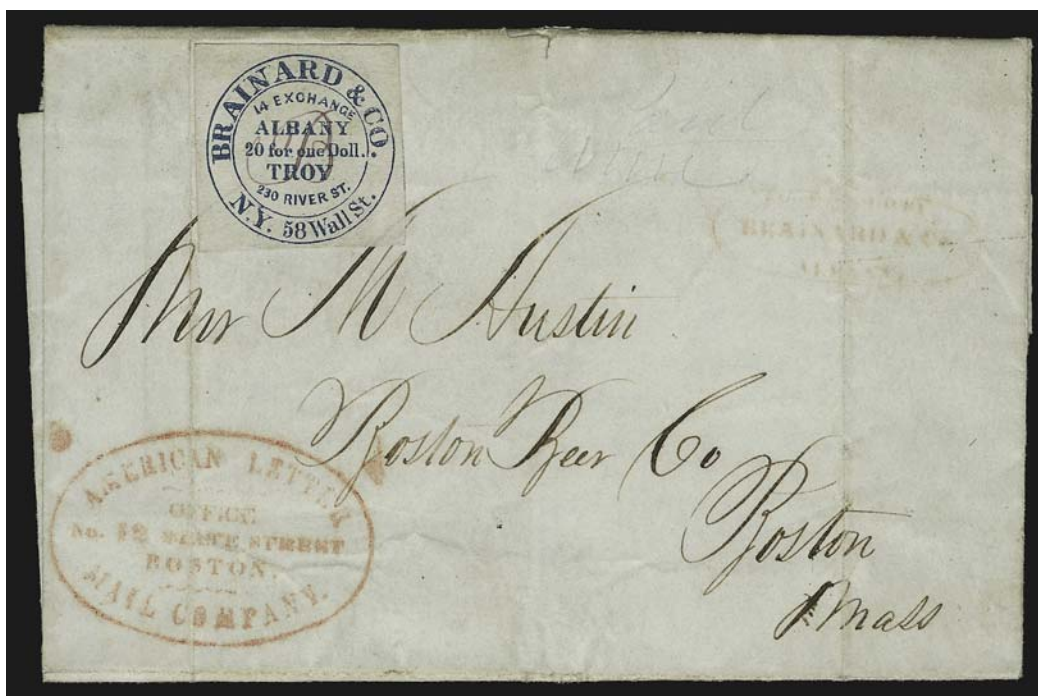 BRAINARD & CO.
14 EXCHANGE
ALBANY
20 for one Doll.
TROY
230 RIVER ST.
N.Y. 58 Wall St.
B
BRAINARD & Co
Mr M Austin
Boston Beer Co
Boston
Mass
AMERICAN LETTER
OFFICE
No. 12 STATE STREET
BOSTON.
MAIL COMPANY.